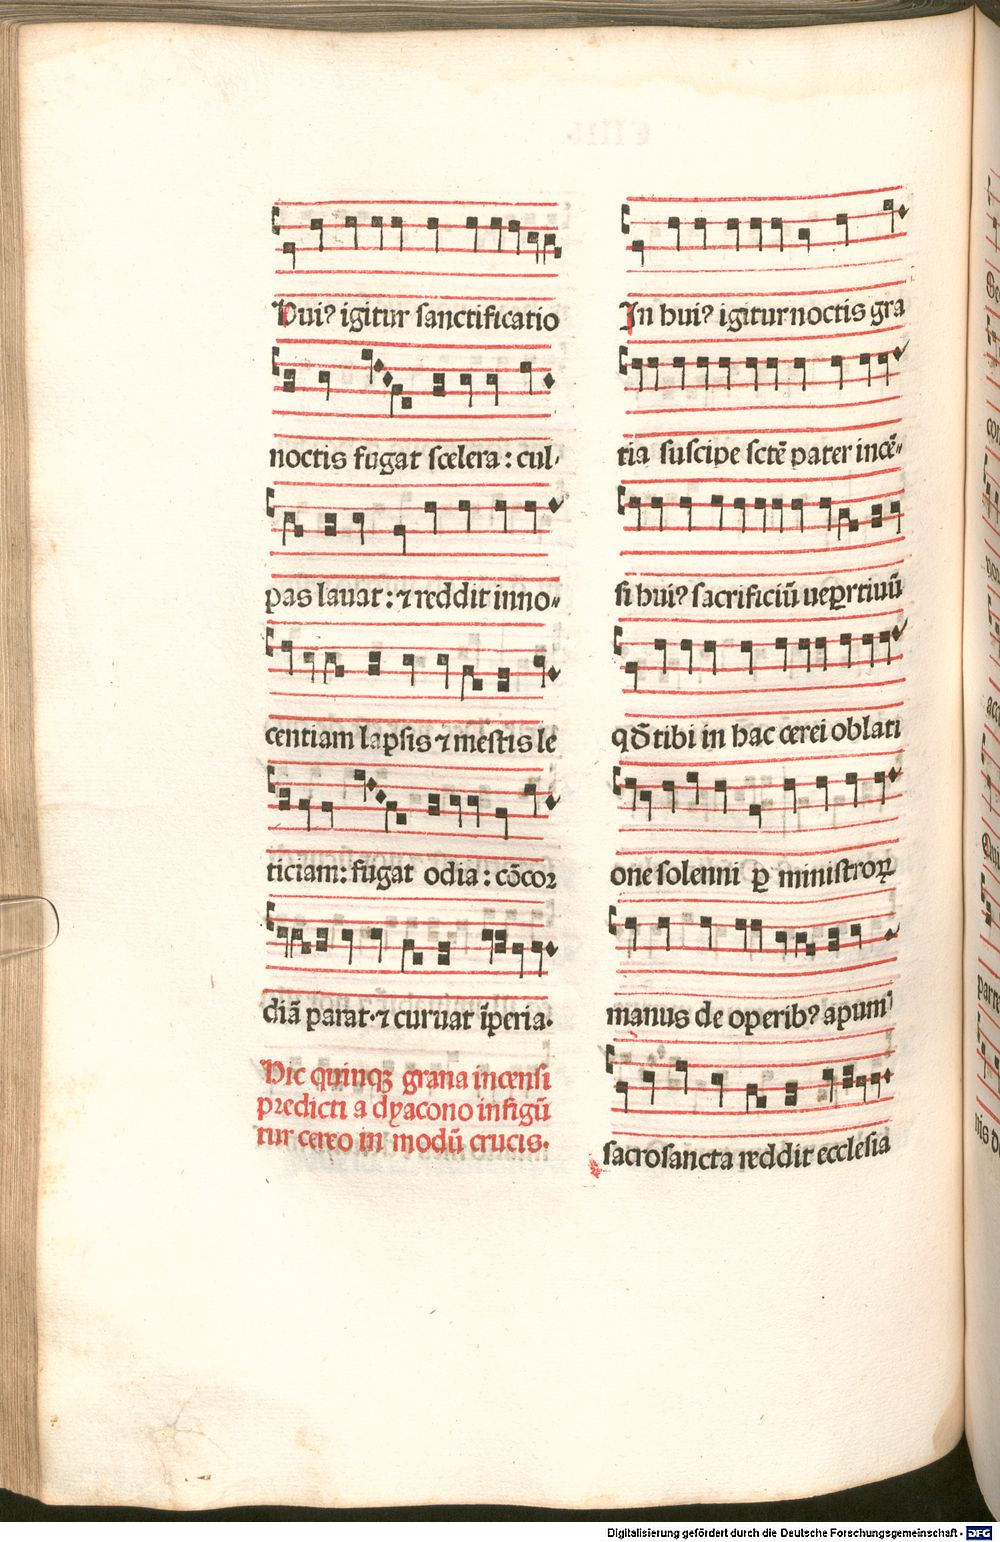 Huiꝰ igitur sanctificatio
noctis fugat scelera: cul-
pas lauat: ⁊ reddit inno-
centiam lapsis ⁊ mestis le
ticiam: fugat odia: cōcoꝛ
diā parat· ⁊ curuat īperia.
Hic quinqꝫ grana incensi
predicti a dyacono infigū
tur cereo in modū crucis.
In huiꝰ igitur noctis gra
tia suscipe sctē pater incē-
si huiꝰ sacrificiū ueꝑtinū
qđ tibi in hac cerei oblati
one solenni ꝑ ministroꝝ
manus de operibꝰ apum
sacrosancta reddit ecclesia
Digitalisierung gefördert durch die Deutsche Forschungsgemeinschaft - DFG